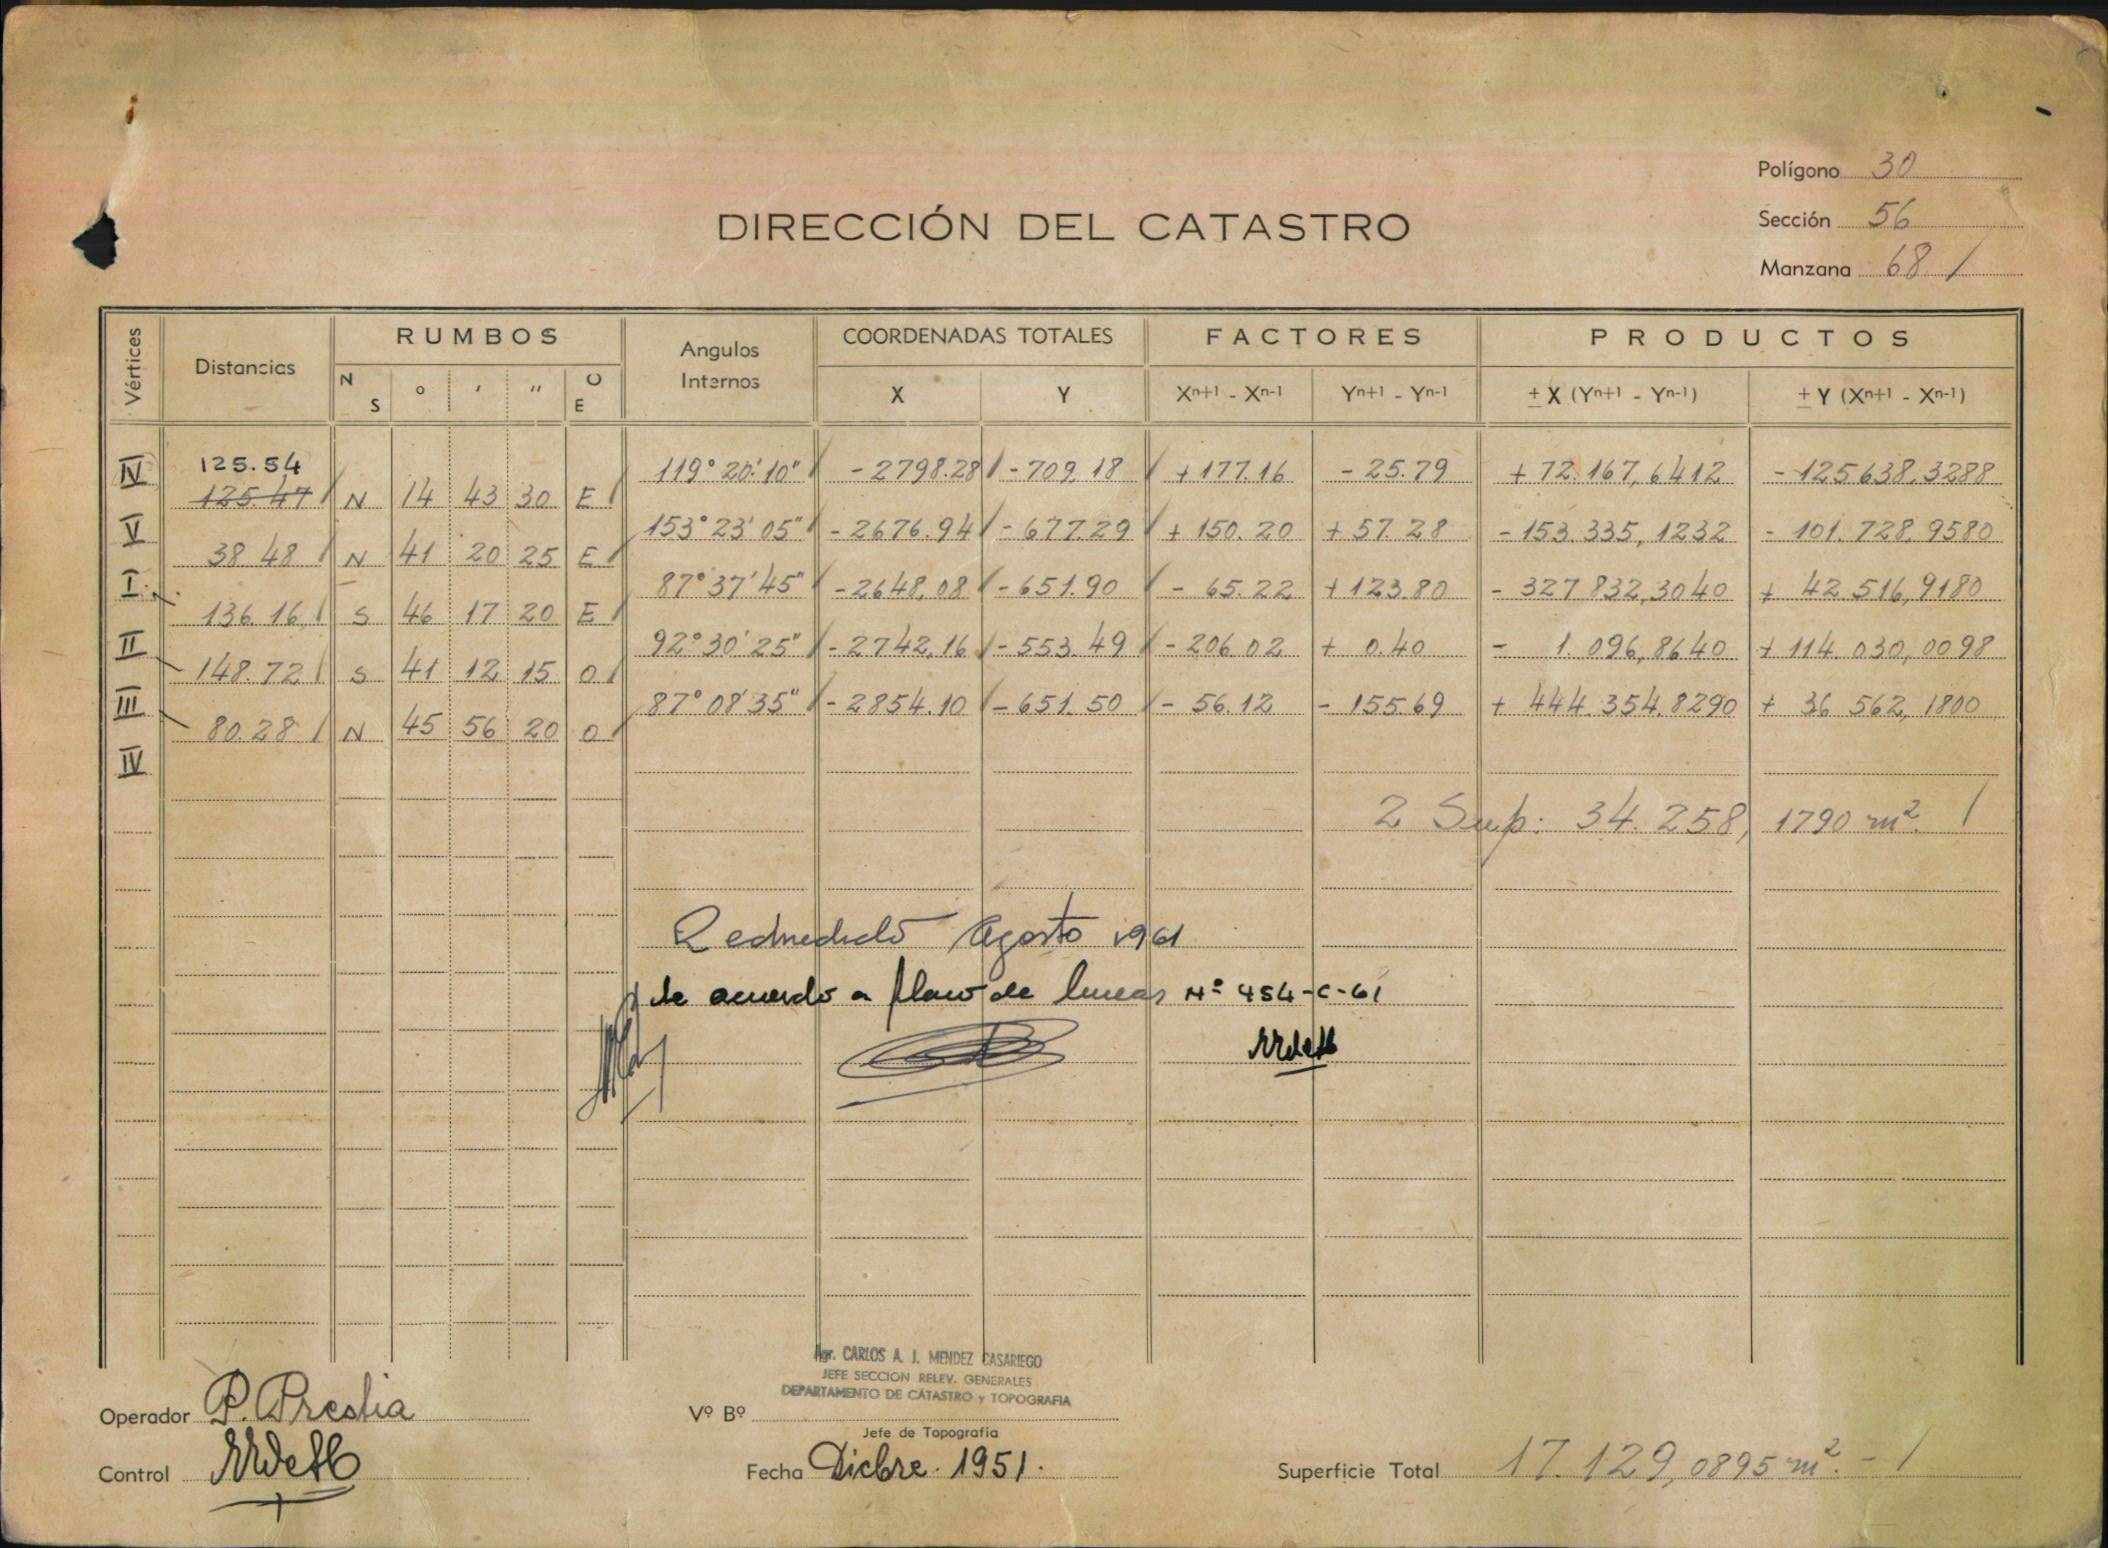 Polígono 30
DIRECCIÓN DEL CATASTRO
Sección 56
Manzana 68 /
Vértices Distancias RUMBOS N S ° ' " O E Angulos Internos COORDENADAS TOTALES X Y FACTORES Xn+1 - Xn-1 Yn+1 - Yn-1 PRODUCTOS ± X (Yn+1 - Yn-1) ± Y (Xn+1 - Xn-1)
IV 125.54 119° 20' 10" - 2798.28 - 709,18 + 177.16 - 25.79 + 72.167,6412 - 125638,3288
125.47 N 14 43 30 E
V 153° 23' 05" - 2676.94 - 677.29 + 150.20 + 57.28 - 153.335,1232 - 101.728,9580
38.48 N 41 20 25 E
I 87° 37' 45" - 2648,08 - 651.90 - 65.22 + 123.80 - 327832,3040 + 42.516,9180
136.16 S 46 17 20 E
II 92° 30' 25" - 2742,16 - 553.49 - 206.02 + 0.40 - 1.096,8640 + 114.030,0098
148.72 S 41 12 15 O
III 87° 08' 35" - 2854.10 - 651.50 - 56.12 - 155.69 + 444.354.8290 + 36 562,1800
80.28 N 45 56 20 O
IV
2 Sup: 34.258,1790 m². /
Agosto 1961
de acuerdo a plano de lineas Nº 454-C-61
Agr. CARLOS A. J. MENDEZ CASARIEGO
JEFE SECCION RELEV. GENERALES
DEPARTAMENTO DE CATASTRO y TOPOGRAFIA
Operador P. Prestia
Vº Bº
Jefe de Topografía
Control
Fecha Dicbre. 1951.
Superficie Total 17.129,0895 m². - /